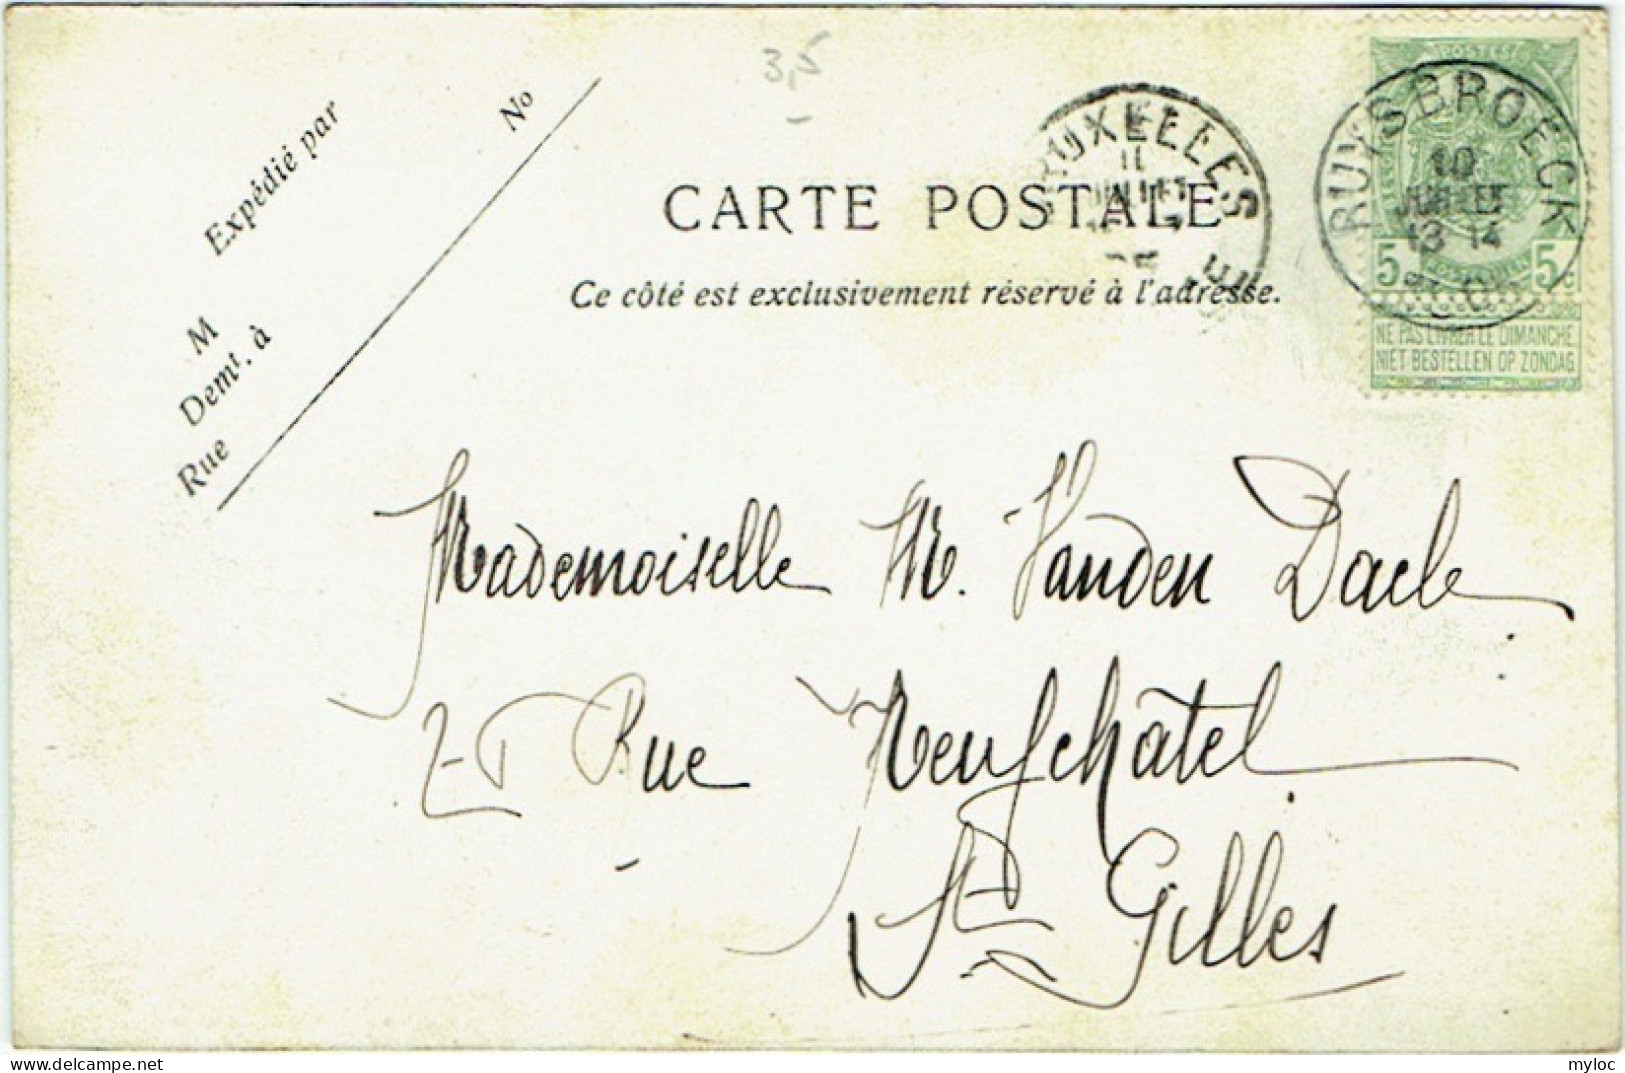 3,5
Expédié par
No
M
Demt. à
Rue
CARTE POSTALE
Ce côté est exclusivement réservé à l'adresse.
BRUXELLES
11
JUILLET
RUYSBROECK
10
JUILLET
13-14
POSTES
5c 5c
NE PAS LIVRER LE DIMANCHE
NIET BESTELLEN OP ZONDAG
Mademoiselle M. Vanden Daele
Rue Neufchâtel
St Gilles
delcampe.net
myloc